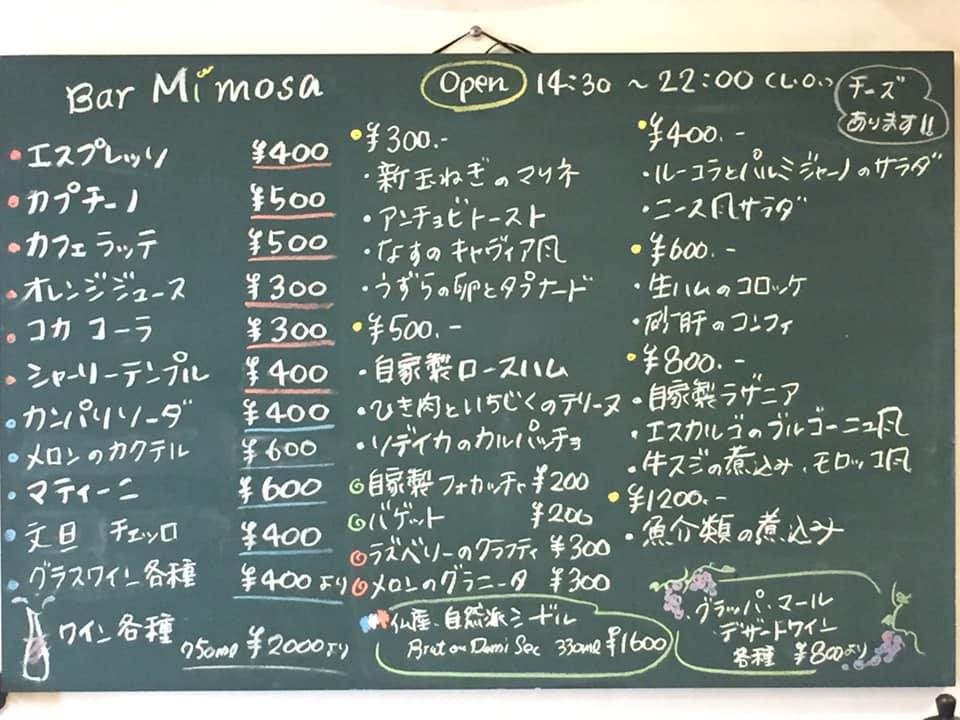 Bar Mimosa
Open 14:30 ～ 22:00 (L.O.)
チーズ
あります!!
エスプレッソ ¥400
カプチーノ ¥500
カフェ ラッテ ¥500
オレンジジュース ¥300
コカ コーラ ¥300
シャーリーテンプル ¥400
カンパリソーダ ¥400
メロンのカクテル ¥600
マティーニ ¥600
文旦 チェッロ ¥400
グラスワイン各種 ¥400より
ワイン各種
750ml ¥2000より
¥300.-
・新玉ねぎのマリネ
・アンチョビトースト
・なすのキャヴィア風
・うずらの卵とタプナード
¥500.-
・自家製ロースハム
・ひき肉といちじくのテリーヌ
・ソデイカのカルパッチョ
自家製フォカッチャ ¥200
バゲット ¥200
ラズベリーのクラフティ ¥300
メロンのグラニータ ¥300
仏産、自然派シードル
Brut ou Demi Sec 330ml ¥1600
¥400.-
・ルーコラとパルミジャーノのサラダ
・ニース風サラダ
¥600.-
・生ハムのコロッケ
・砂肝のコンフィ
¥800.-
・自家製ラザニア
・エスカルゴのブルゴーニュ風
・牛スジの煮込み、モロッコ風
¥1200.-
・魚介類の煮込み
グラッパ・マール
デザートワイン
各種 ¥800より